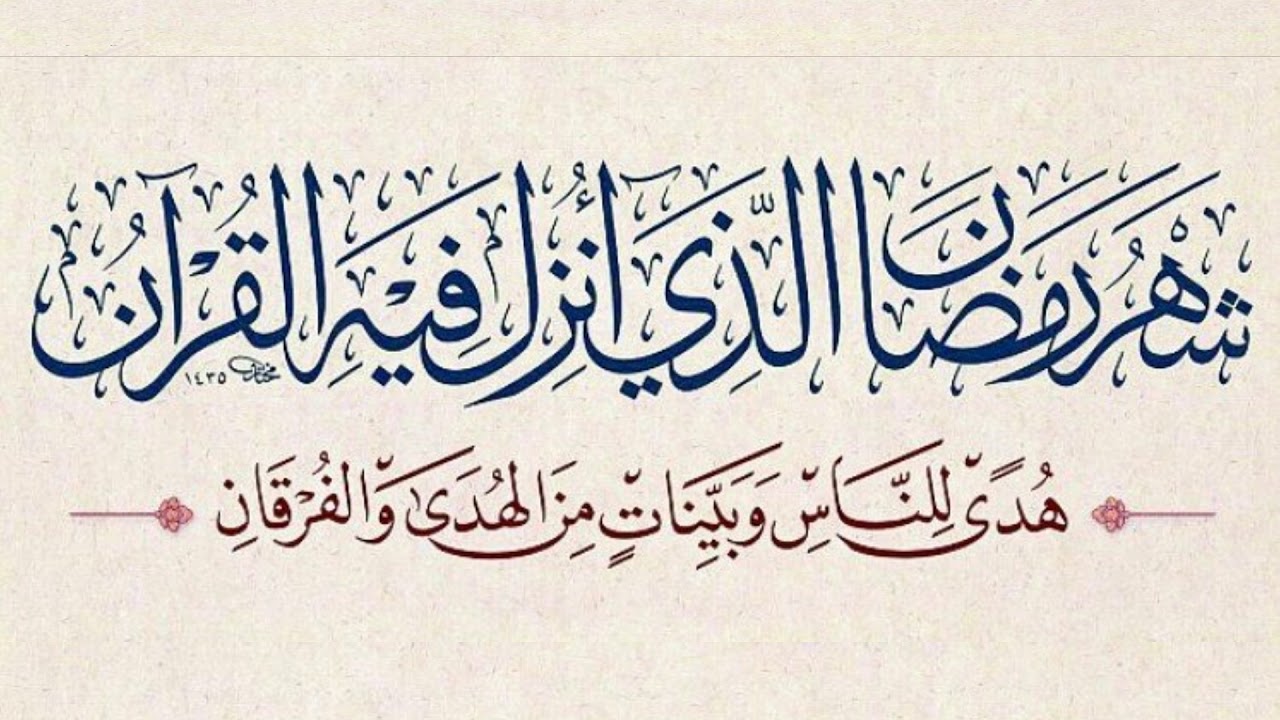 شَهْرُ رَمَضَانَ الَّذِي أُنْزِلَ فِيهِ الْقُرْآنُ
١٤٣٥
هُدًى لِلنَّاسِ وَبَيِّنَاتٍ مِنَ الْهُدَىٰ وَالْفُرْقَانِ